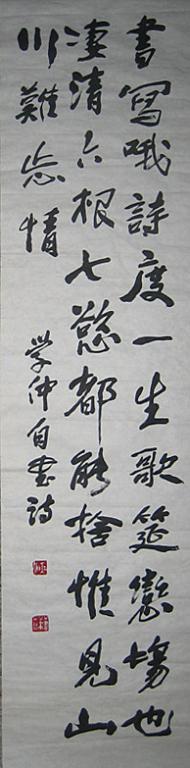 書寫哦詩度一生歌筵戀場也
淒清六根七慾都能捨惟見山
川難忘情
学仲自书詩